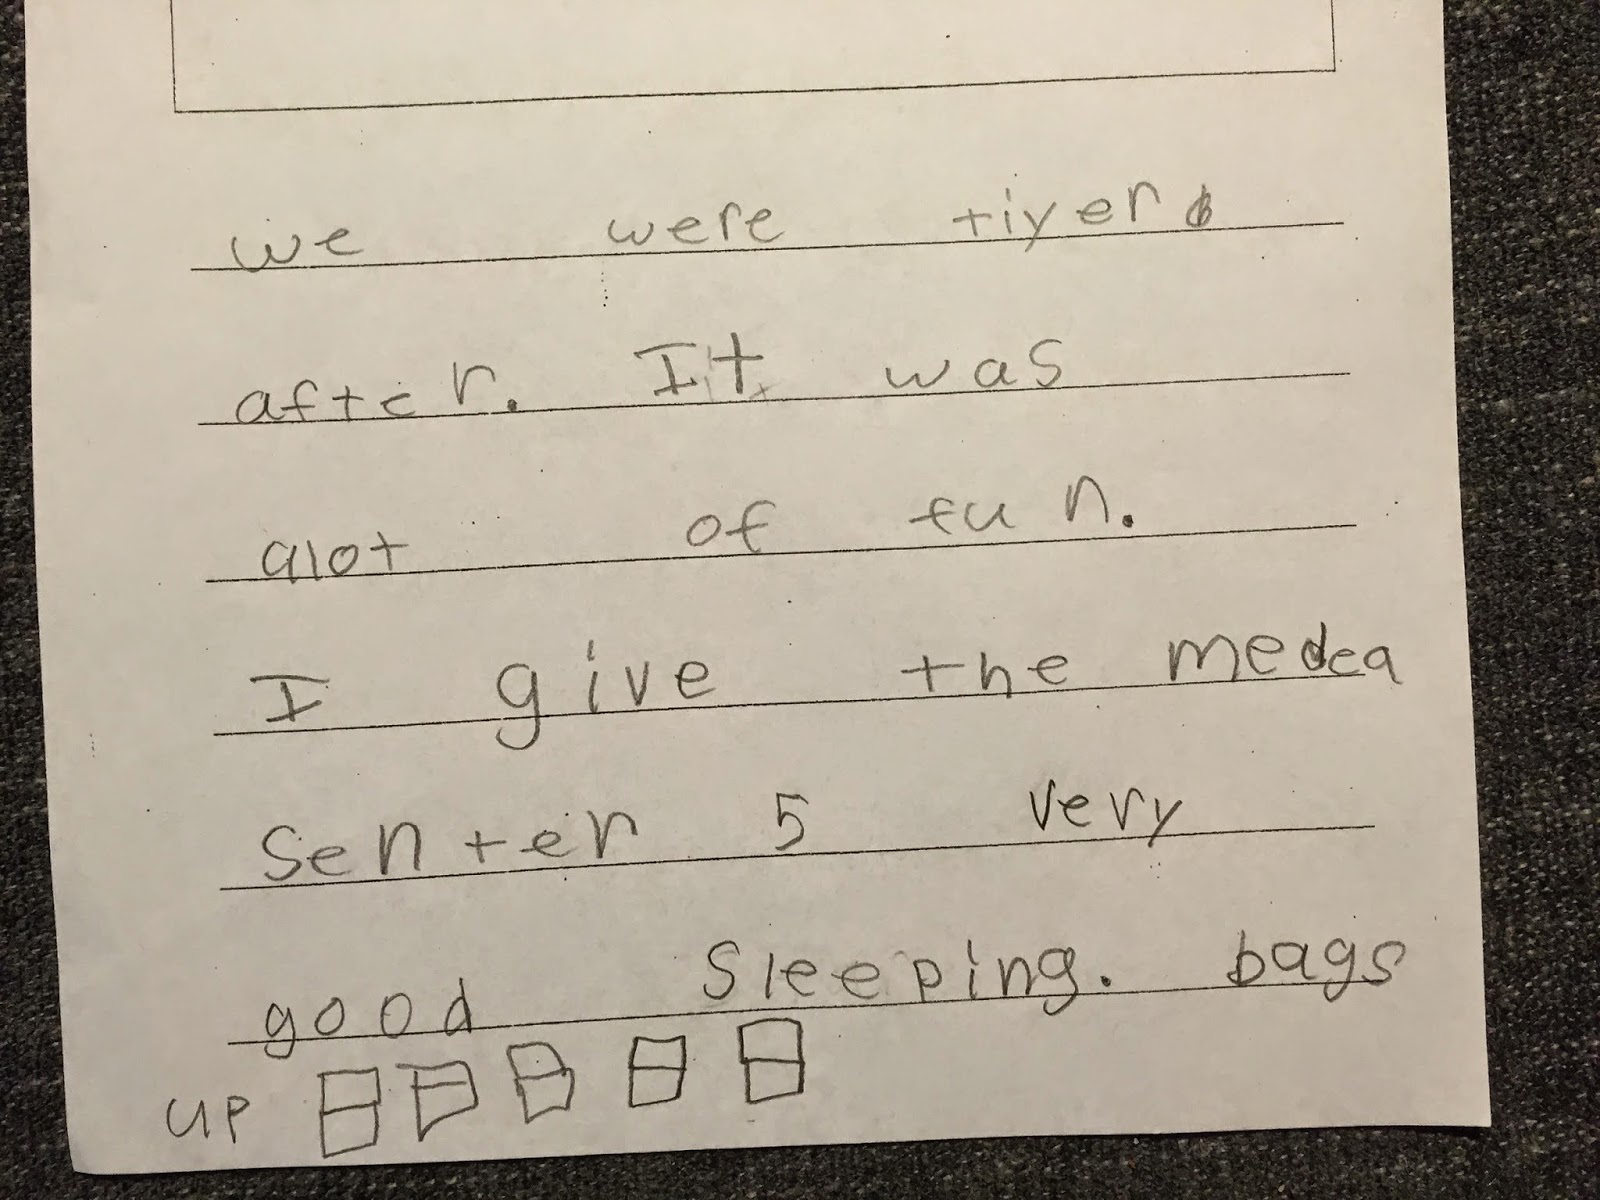 we were tiyerd
after. It was
alot of fun.
I give the medea
Senter 5 very
good Sleeping. bags
up